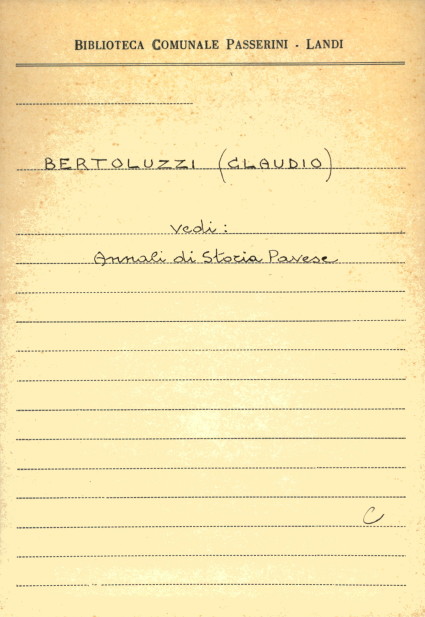 BIBLIOTECA COMUNALE PASSERINI - LANDI
BERTOLUZZI (CLAUDIO)
vedi:
Annali di Storia Pavese
C